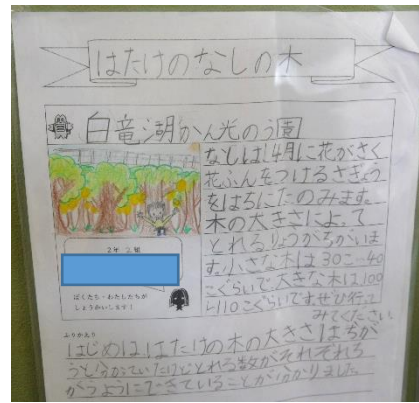 はたけのなしの木
白竜湖かん光のう園
なしは、4月に花がさく
花ふんをつけるさぎょう
をはちにたのみます。
木の大きさによって
とれるりょうがちがいま
す。小さな木は30こ〜40
こぐらいで、大きな木は100
110こぐらいです。ぜひ行って
みてください。
2年2組
ぼくたち・わたしたちが
しょうかいします!
ふりかえり
はじめは、はたけの木の大きさはちが
うと分かっていたけどとれる数がそれぞれち
がうようにできていることが分かりました